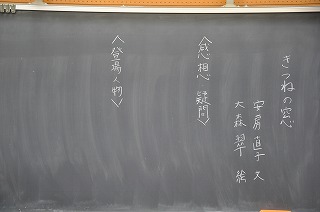 きつねの窓
安房直子 文
大森翠 絵
〈感想 疑問〉
〈登場人物〉